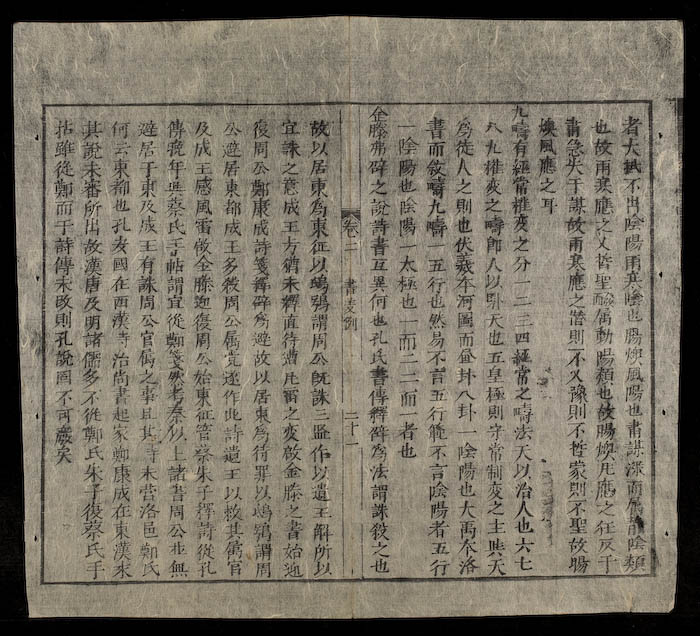 者大抵不出陰陽雨寒陰也暘燠風陽也肅謀深而屬靜陰類
也故雨寒應之乂哲聖屬動陽類也故暘燠風應之狂反于
肅急失于謀故雨寒應之僭則不乂豫則不哲蒙則不聖故暘
燠風應之耳
九疇有經常權變之分一二三四經常之疇法天以治人也六七
八九權變之疇即人以天也五皇極則守常制變之主與天
為從人之則也伏羲本河圖而畫卦八卦一陰陽也大禹本洛
書而敘疇九疇一五行也然易不言五行範不言陰陽者五行
一陰陽也陰陽一太極也一而二二而一者也
金縢弗辟之說詩書互異何也孔氏書傳釋辟為法謂誅殺之也
卷二 書義例 二十一
故以居東為東征以鴟鴞謂周公既誅三監作以遺王解所以
宜誅之意成王方猶未釋直待遭風雷之變啟金縢之書始迎
復周公鄭康成詩箋釋辟為避故以居東為待罪以鴟鴞謂周
公避居東都成王多殺周公屬党遂作此詩遺王以救其屬官
及成王感風雷啟金縢迎復周公始東征管蔡朱子釋詩從孔
傳晚年與蔡氏手帖謂宜從鄭箋然考秦以上諸書周公並無
避居于東及成王有誅周公官屬之事且其時未營洛邑鄭氏
何云東都也孔安國在西漢時治尚書起家鄭康成在東漢末
其說未審所出故漢唐及明諸儒多不從鄭氏朱子復蔡氏手
帖雖從鄭而于詩傳未改則孔說固不可廢矣